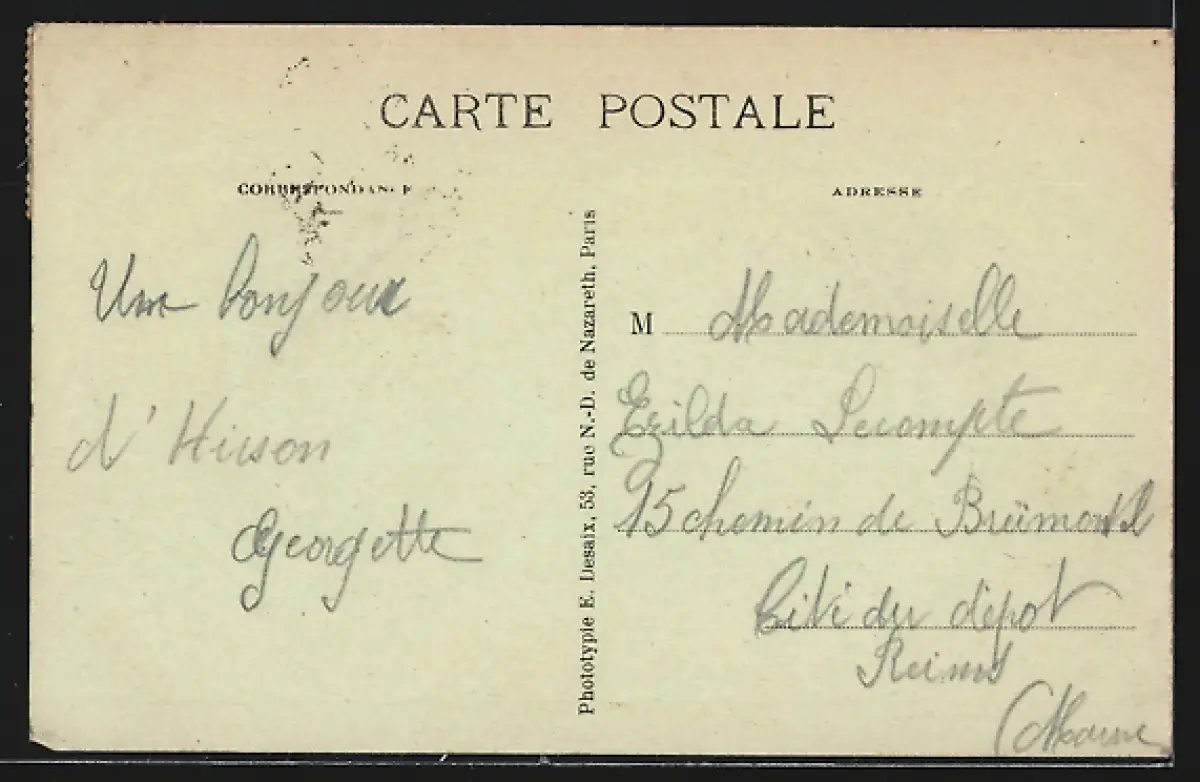 CARTE POSTALE
CORRESPONDANCE
ADRESSE
Un bonjour
d'Hirson
Georgette
Photographie E. Desaix, 53, rue N.-D. de Nazareth, Paris
M Mademoiselle
Ezilda Lecompte
15 chemin de
Cité du dépot
Reims
(Marne